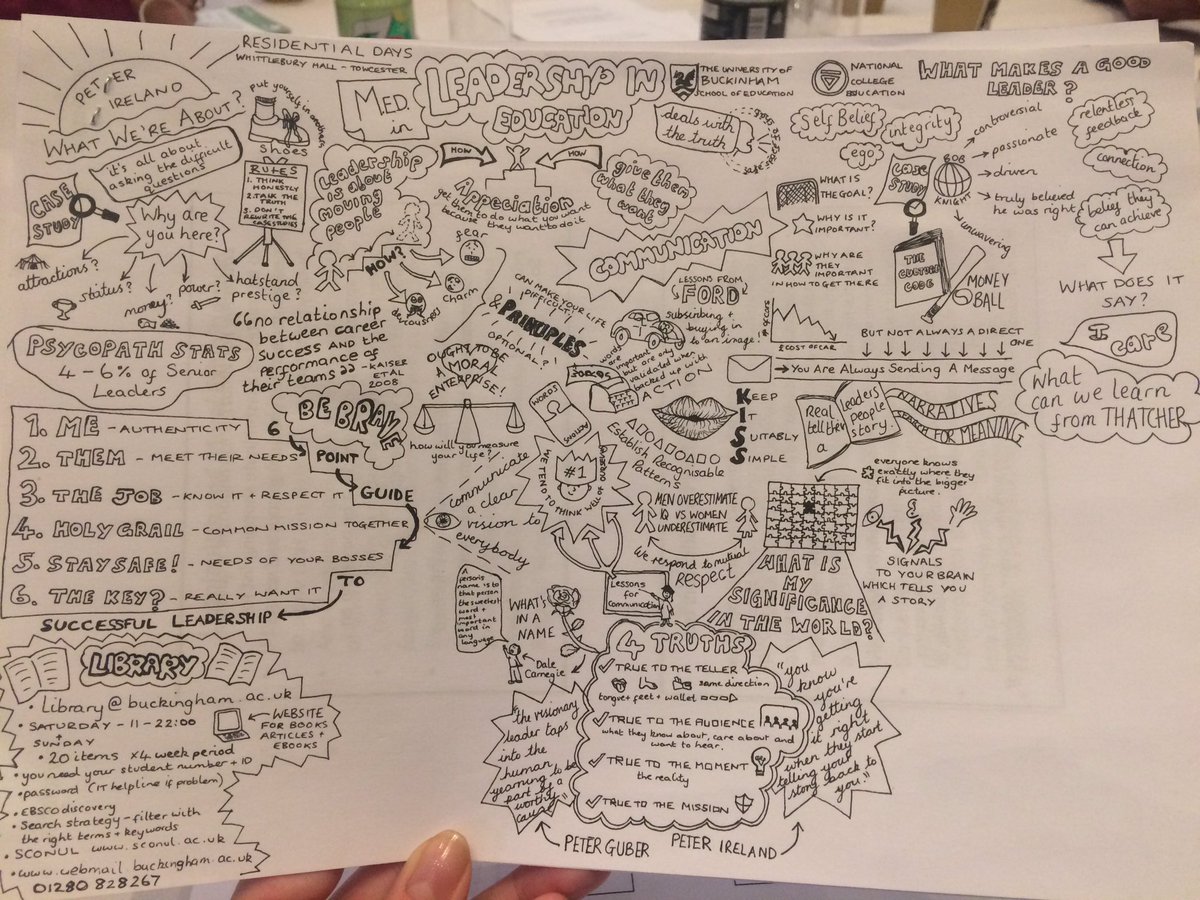 RESIDENTIAL DAYS
WHITTLEBURY HALL - TOWCESTER
PETER
IRELAND
WHAT WE'RE ABOUT?
it's all about
asking the difficult
questions
CASE
STUDY
Why are
you here?
attractions?
status?
money?
power?
hatstand
prestige?
put yourself in anothers
shoes
RULES
1. THINK
HONESTLY
2. TALK THE
TRUTH
3. DON'T
REWRITE THE
CASE STUDIES
MED.
in
LEADERSHIP IN
EDUCATION
THE UNIVERSITY OF
BUCKINHAM
SCHOOL OF EDUCATION
NATIONAL
COLLEGE
EDUCATION
WHAT MAKES A GOOD
LEADER?
Leadership
is about
moving
people
HOW
HOW
Appeciation
get them to do what you want
because they want to do it
give them
what they
want
deals with
the truth
HOW?
fear
charm
deviousness
Self Belief
integrity
ego
CASE
STUDY
BOB
KNIGHT
controversial
passionate
driven
truly believed
he was right
unwavering
relentless
feedback
connection
belief they
can achieve
WHAT DOES IT
SAY?
I
care
What
can we learn
from THATCHER
THE
CULTURE
CODE
MONEY
BALL
COMMUNICATION
WHAT IS
THE GOAL?
WHY IS IT
IMPORTANT?
WHY ARE
THEY
IMPORTANT
IN HOW TO GET THERE
LESSONS FROM
FORD
subscribing +
buying in
to an image!
# OF CARS
£ COST OF CAR
BUT NOT ALWAYS A DIRECT
ONE
You Are Always Sending A Message
PSYCOPATH STATS
4 - 6% of Senior
Leaders
"no relationship
between career
success and the
performance of
their teams"
- KAISER
ET AL
2008
CAN MAKE YOUR LIFE
DIFFICULT!
&
PRINCIPLES
OPTIONAL?!
OUGHT TO BE
A MORAL
ENTERPRISE!
how will you measure
your life?
BE BRAVE
words
are
important
but are only
validated when
backed up with
ACTION
WORDS
ACTIONS
KEEP
IT
SUITABLY
SIMPLE
Establish Recognisable
Patterns
Real Leaders
tell their people
a story.
NARRATIVES
SEARCH FOR MEANING
1. ME - AUTHENTICITY
2. THEM - MEET THEIR NEEDS
3. THE JOB - KNOW IT + RESPECT IT
4. HOLY GRAIL - COMMON MISSION TOGETHER
5. STAY SAFE! - NEEDS OF YOUR BOSSES
6. THE KEY? - REALLY WANT IT
6
POINT
GUIDE
TO
SUCCESSFUL LEADERSHIP
communicate
a clear
vision to
everybody
#1
WE TEND TO THINK WELL OF OURSELVES
MEN OVERESTIMATE
IQ VS WOMEN
UNDERESTIMATE
We respond to mutual
RESPECT
everyone knows
exactly where they
fit into the bigger
picture.
SIGNALS
TO YOUR BRAIN
WHICH TELLS YOU
A STORY
WHAT IS
MY
SIGNIFICANCE
IN THE WORLD?
A
persons
name is to
that person
the sweetest
word + most
important
word in
any
language
WHAT'S
IN A
NAME
Dale
Carnegie
Lessons
for
communication
4 TRUTHS
TRUE TO THE TELLER
tongue + feet + wallet
same direction
TRUE TO THE AUDIENCE
what they know about, care about and
want to hear.
TRUE TO THE MOMENT
the reality
TRUE TO THE MISSION
"the visionary
leader taps
into the
human
yearning to be
part of a
worthy
cause"
PETER GUBER
"you
know
you're
getting
it right
when they start
telling your
story back to
you."
PETER IRELAND
LIBRARY
• Library@buckingham.ac.uk
• SATURDAY - 11 - 22:00
+
SUNDAY
• 20 items x4 week period
• you need your student number + ID
• password (IT helpline if problem)
• EBSCO discovery
• Search strategy - filter with
the right terms + keywords
• SCONUL www.sconul.ac.uk
• www.webmail buckingham.ac.uk
01280 828267
WEBSITE
FOR BOOKS
ARTICLES +
EBOOKS